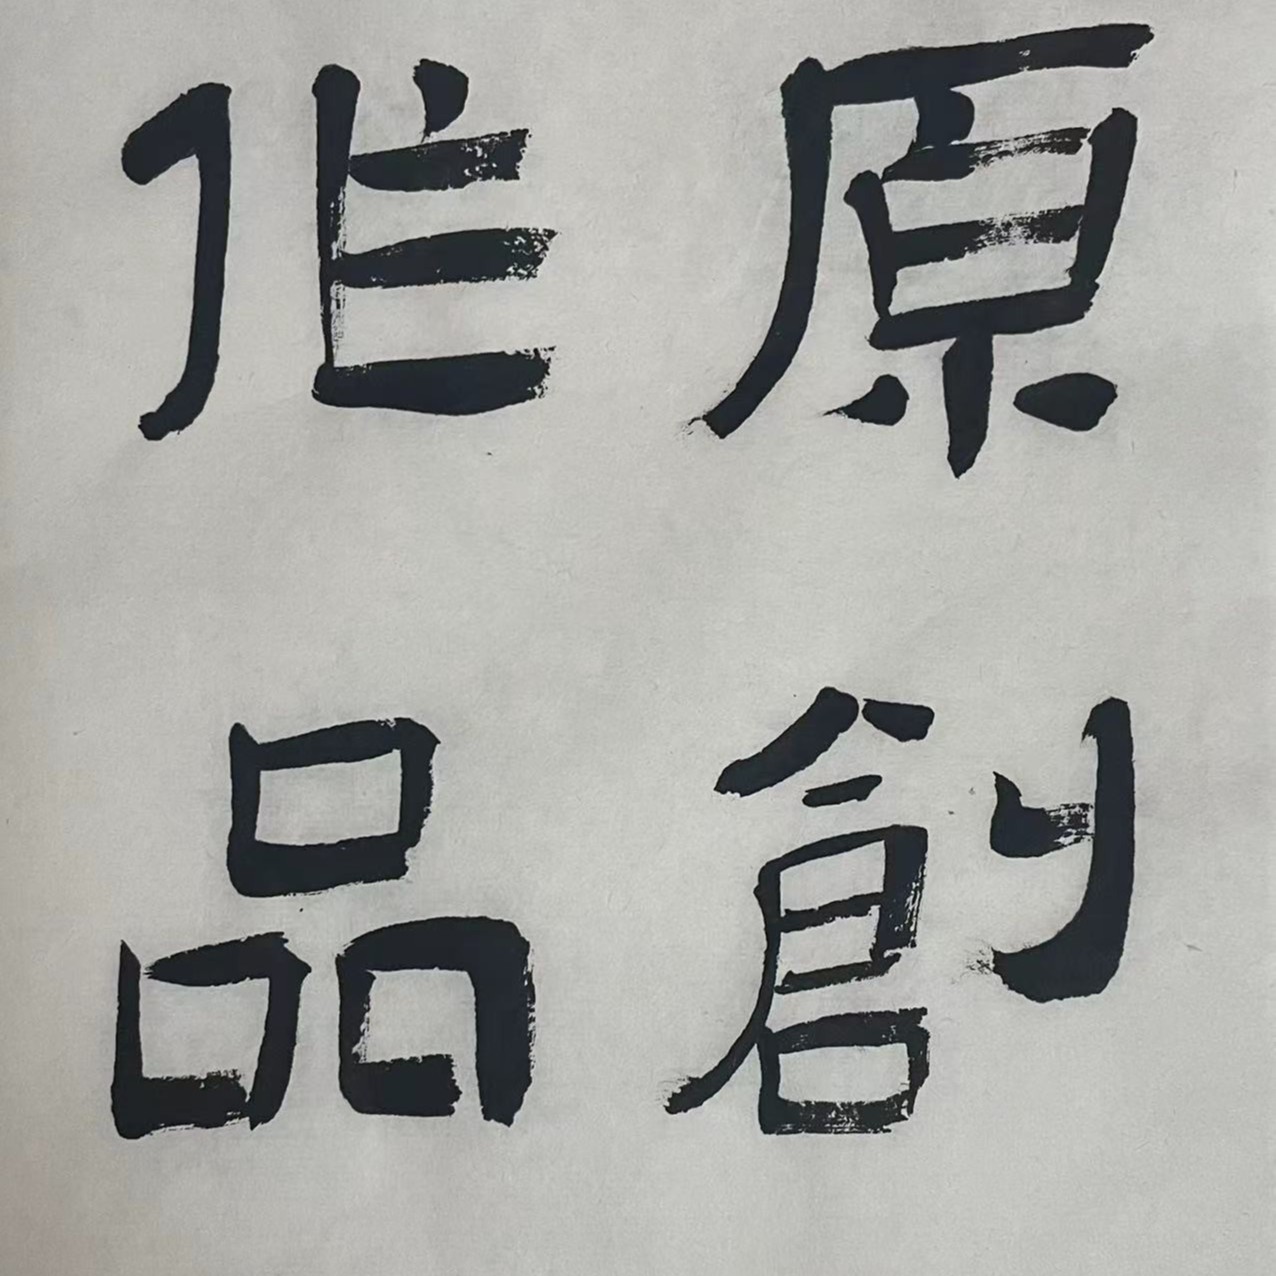 原創
作品